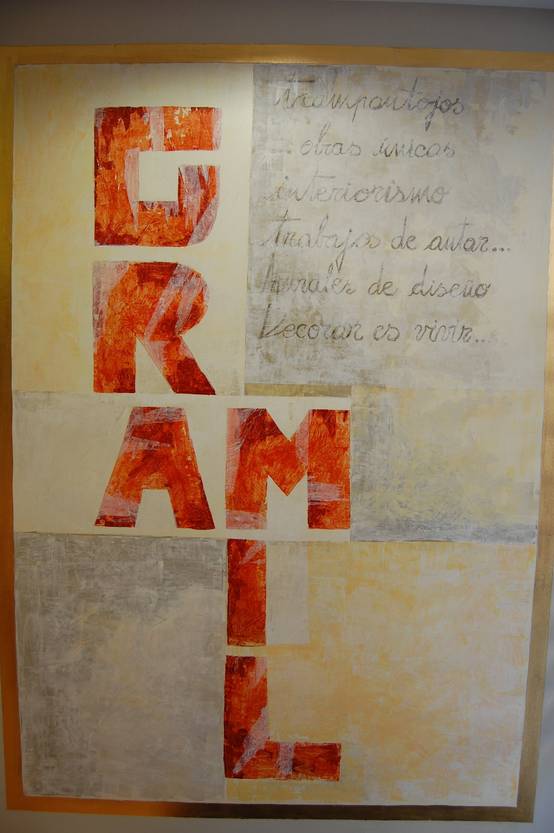 trampantojos
obras únicas
interiorismo
trabajos de autor...
murales de diseño
Decorar es vivir...
G
R
A M
I
L